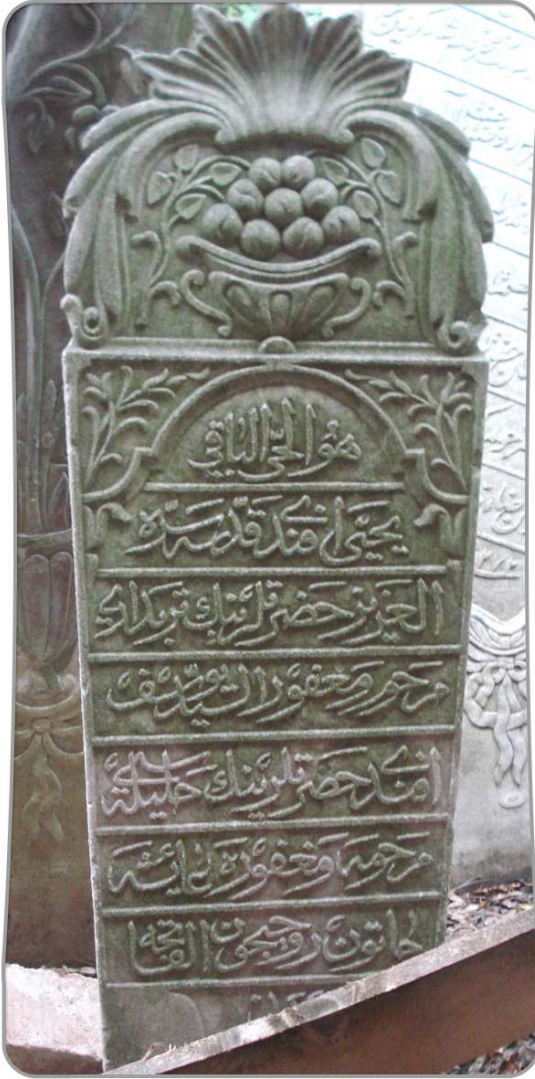 هو الحي الباقي
يحيى افندي قدس سره
العزيز حضرتلرينك تربه‌دارى
مرحوم و مغفور السيد يوسف
افندى حضرتلرينك حليله‌سى
مرحومه و مغفوره
خاتون روحيچون الفاتحه